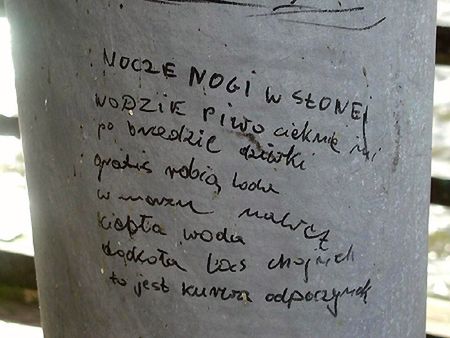 MOCZE NOGI W SŁONEJ
WODZIE PIWO cieknie mi
po brzodzie dziwki
gratis robią loda
w morzu
ciepła woda
dookoła las chojnich
to jest kurwa odpoczynek